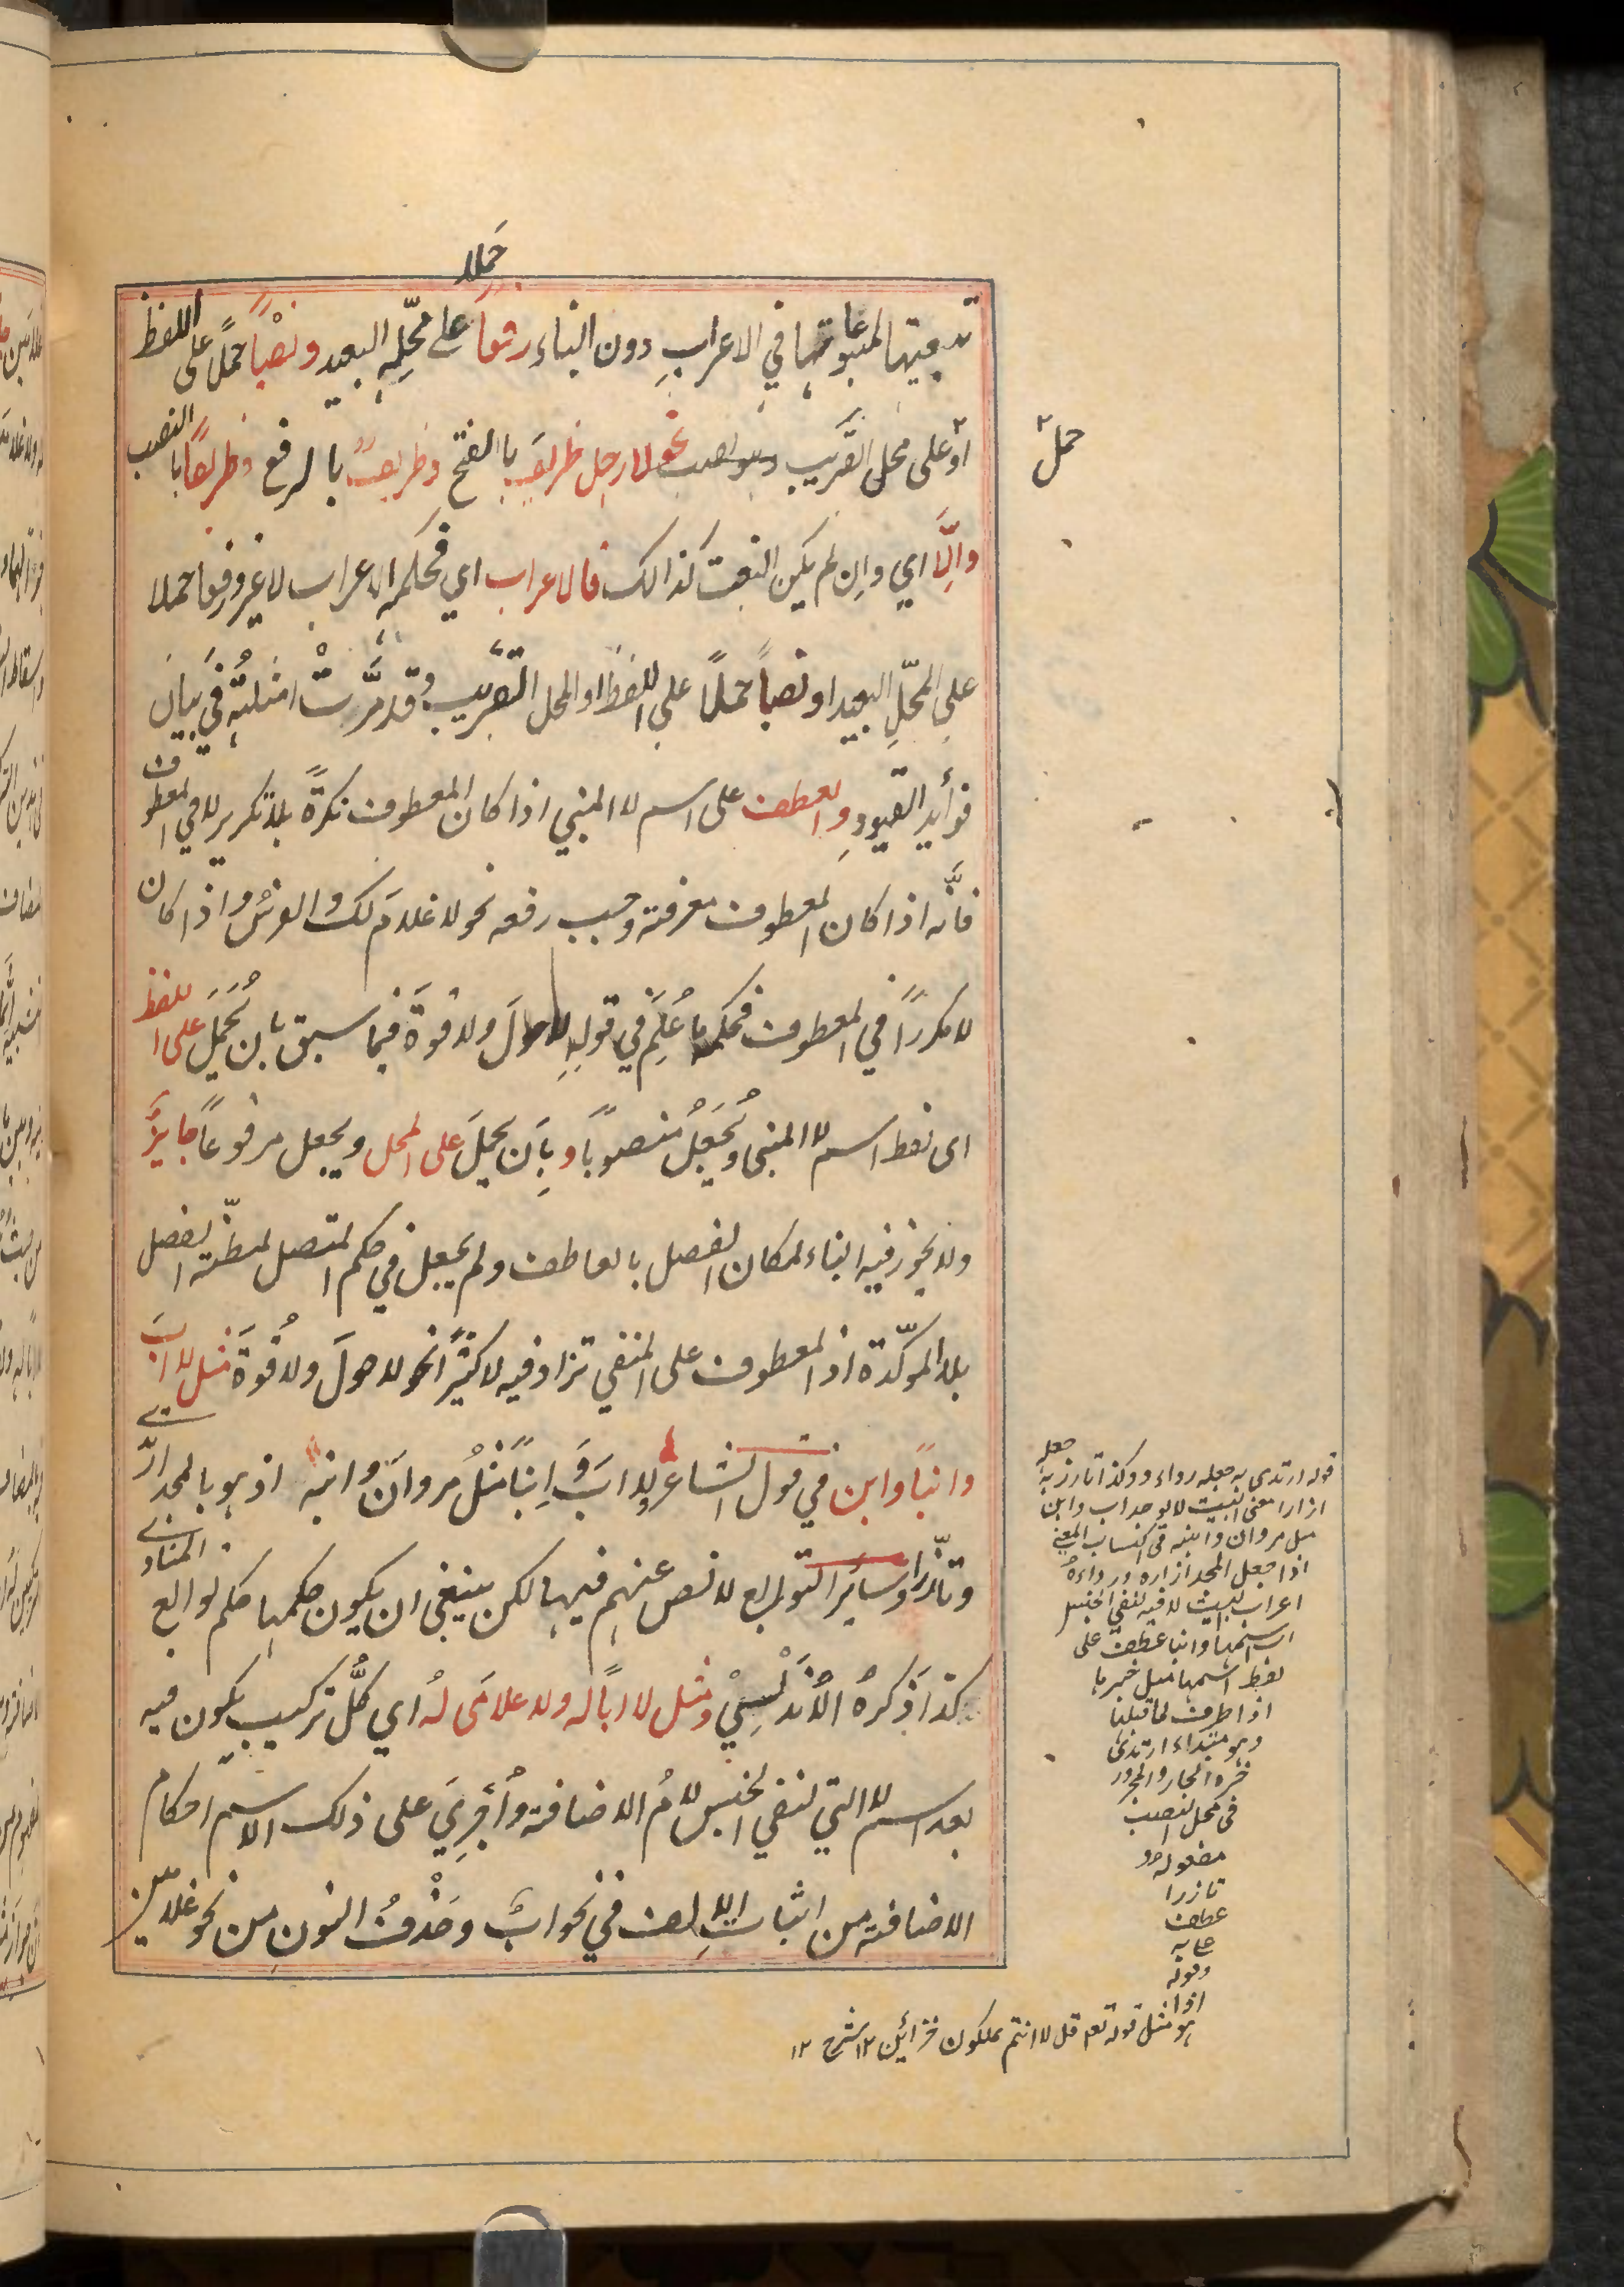 حملا
تبعيتها لمتبوعاتها في الاعرابِ دون البناء رفعاً على محلِّهِ البعيد ونصْباً حملًا على اللفظ
او على محل القريب وهو نصب نحو لا رجل ظريفَ بالفتح وظريفٌ بالرفع وظريفاً بالنصب
حمل
والَّا اي وان لم يكن النعت كذالك فالاعراب اي فحكمه الاعراب لا غير رفعا حملا
على المحّلِ البعيد او نصباً حملًا على اللفظ او المحل القريب وقد مَرَّتْ امثلتُه في بيان
فوأيد القيود والعطف على اسم لا المبني اذا كان المعطوف نكرةً بلا تكرير لا في المعطوف
فانَّه اذا كان المعطوف معرفة وجب رفعه نحو لا غلامَ لك والفرسُ واذا كان
لا مكرراً في المعطوف فحكمه ما عُلِمَ في قوله لا حولَ ولا قوةَ فيما سبق بان يُحْمَلَ على اللفظ
اى لفظ اسم لا المبنى ويُجْعَلُ منصوباً وبِأن يحملَ على المحل ويجعل مرفوعاً جايزٌ
ولا يجوز فيه البناء لمكان الفصل بالعاطف ولم يجعل في حكم المتصل لمظنّة الفصل
بلا المؤكّدة اذ المعطوف على المنفي تزاد فيه لا كثيرًا نحو لا حولَ ولا قُوةَ مثل لا ابَ
وابناً وابن في قول الشاعر لا ابَ وَ اِبناً مثلُ مروانَ وابنه اذ هو بالمجد ارتدى
وتأزّرا وسائر التوابع لا نص عنهم فيها لكن ينبغي ان يكون حكمها حكم توابع المنادى
كذا ذكرهُ الأندَلْسِيْ ومثل لا اباً له ولا غلامَى لهُ اي كلُّ تركيب يكون فيه
بعد اسم لا التي لنفي الجنس لامُ الاضافة وأُجْرِيَ على ذلك الاسم احكام
الاضافة من اثبات الالف في نحو ابٌ وحَذْفُ النونِ من نحو غلامين
قوله ارتدى به جعله رداء ووكذا تازر به جعله
ازارا معنى البيت لا يوجد اب وابن
مثل مروان وابنه في اكتساب المعنى
اذا جعل المجد ازاره ورداءه
اعراب البيت لا فيه لنفي الجنس
اب اسمها وابنا عطف على
لفظ اسمها مثل خبرها
اذا ظرف لما قبلها
وهو مبتداء ارتدى
خبره الجار والمجرور
فى محل النصب
مفعوله و
تازرا
عطف
عليه
وقوله
اذا
هو مثل قوله تعم قل لا انتم تملكون خزائن ١٢ شرح ١٢